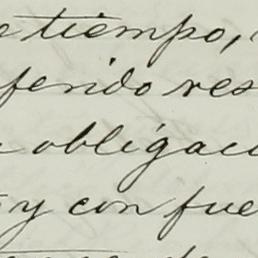 e tiempo,
ferido res
obligaci
y con fue